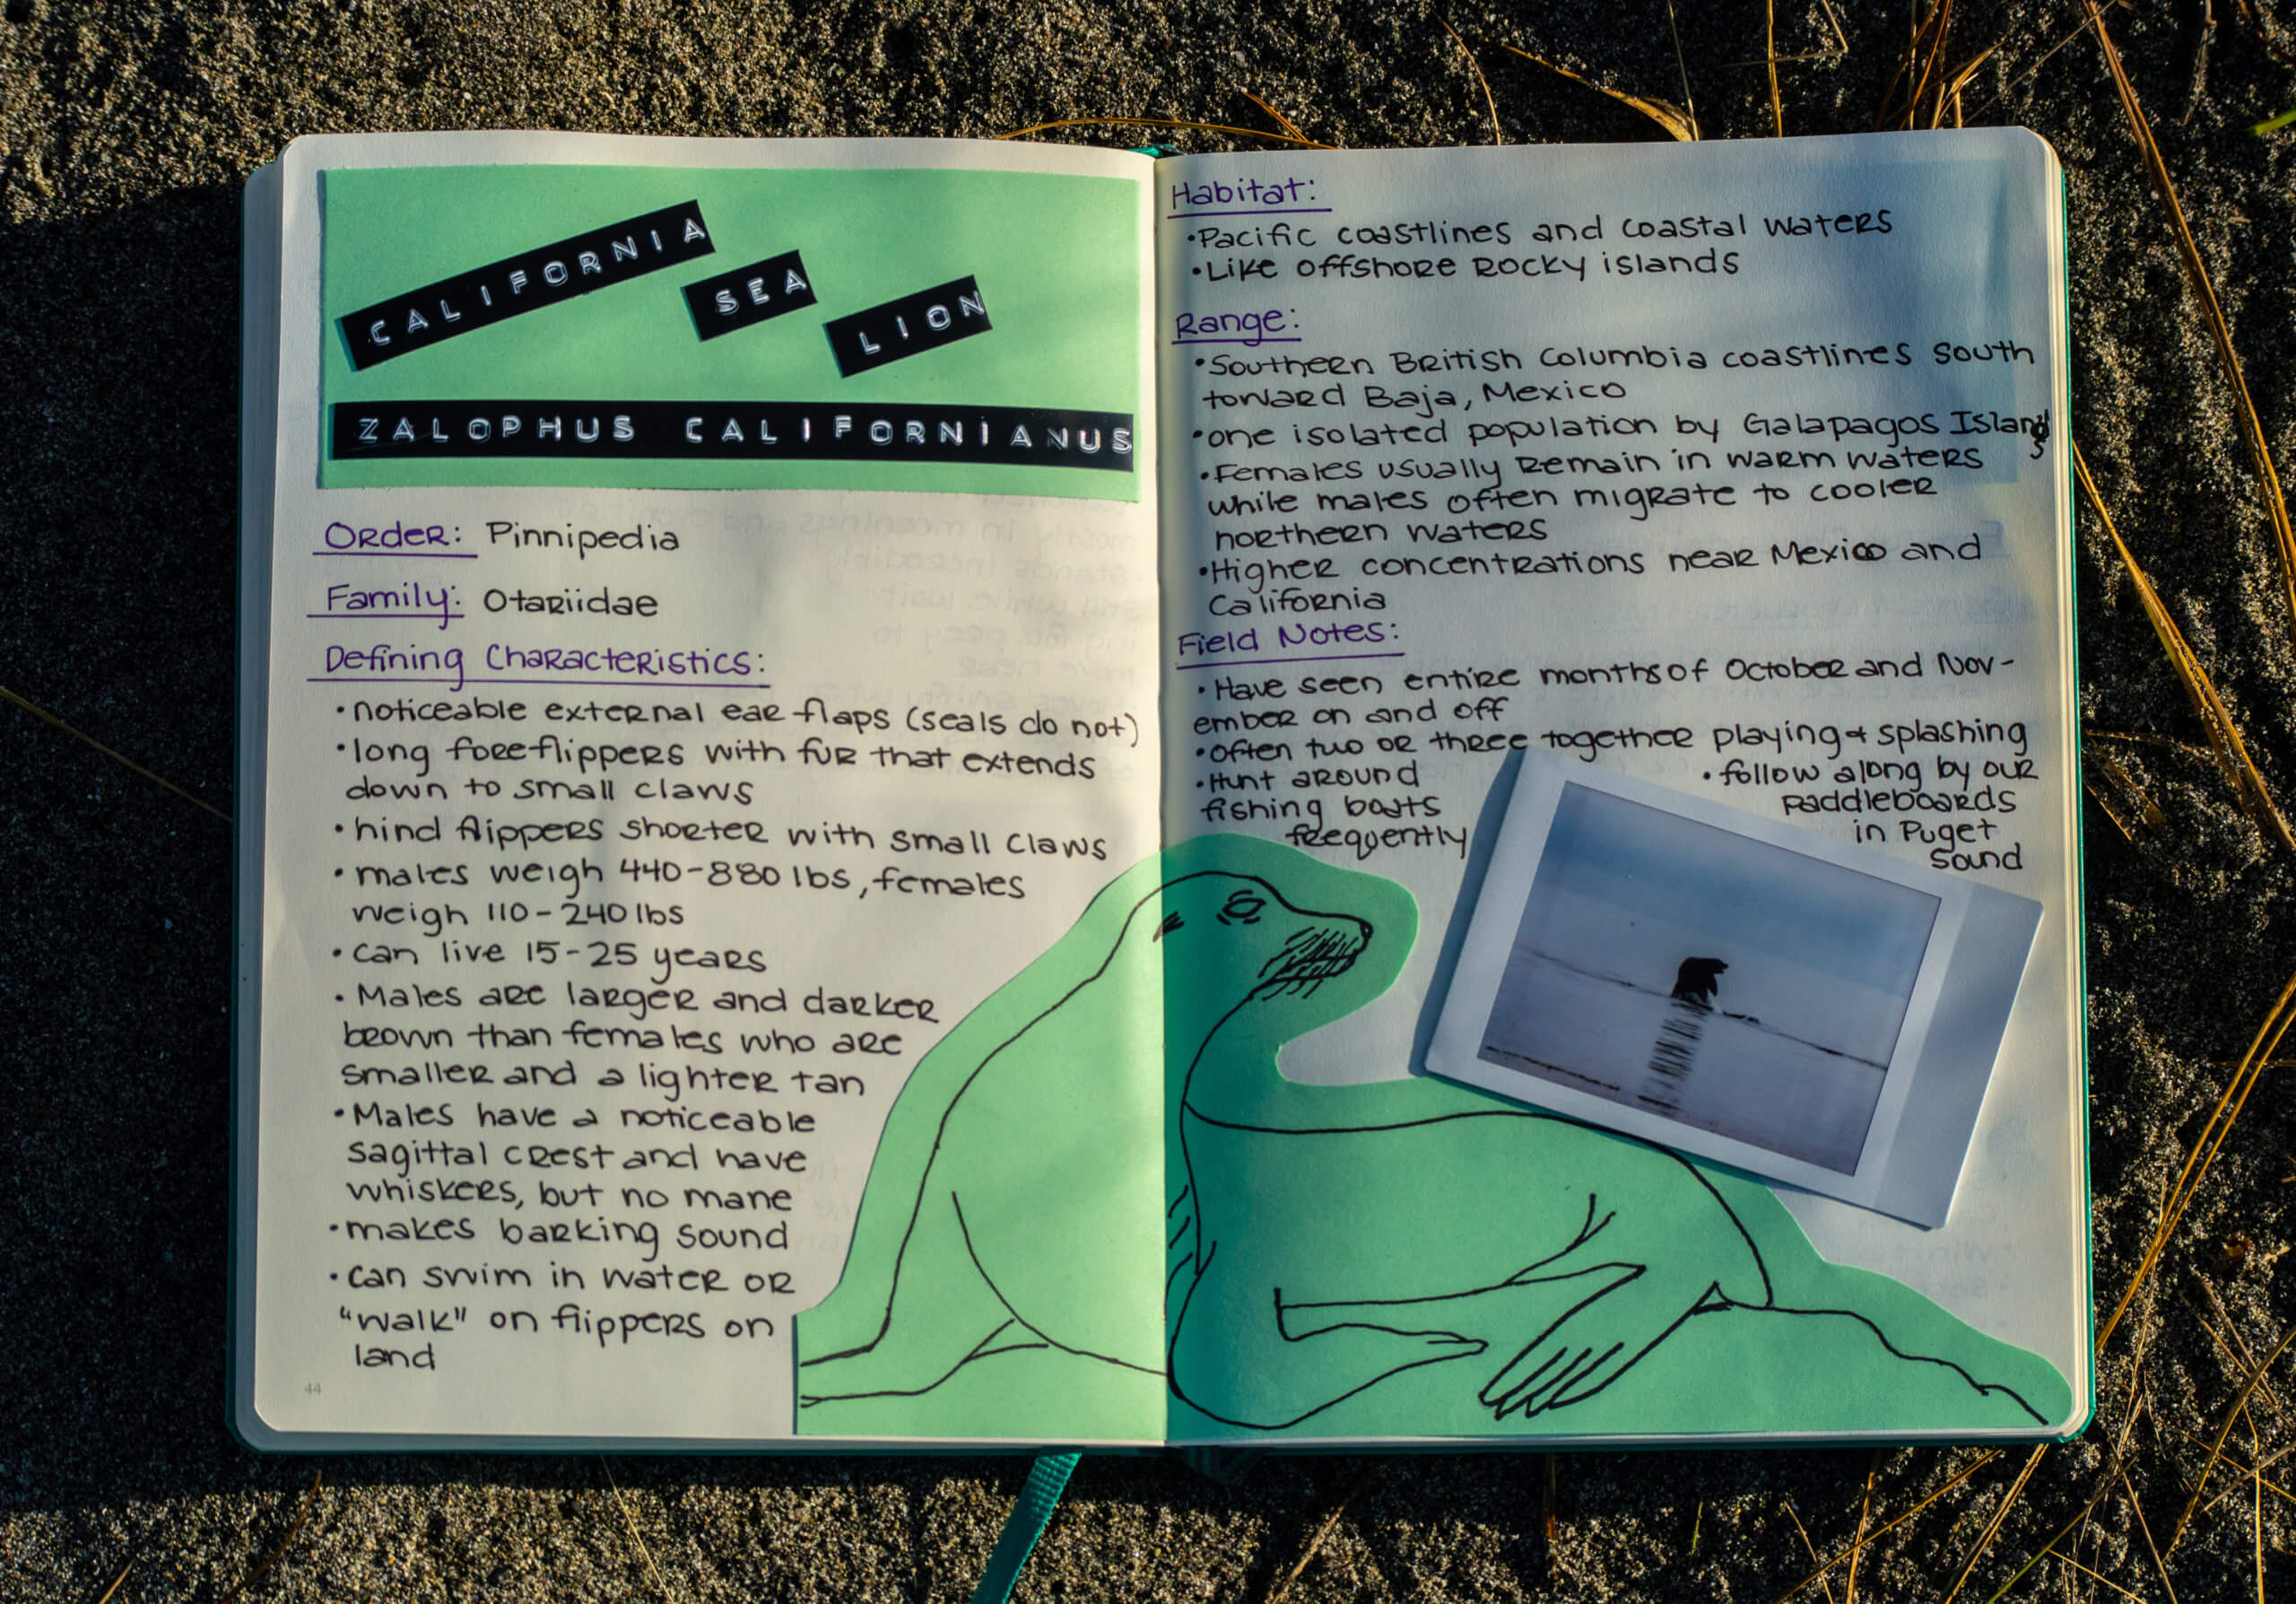 CALIFORNIA
SEA
LION
ZALOPHUS CALIFORNIANUS
Order: Pinnipedia
Family: Otariidae
Defining Characteristics:
• noticeable external ear flaps (seals do not)
• long foreflippers with fur that extends
down to small claws
• hind flippers shorter with small claws
• males weigh 440-880 lbs, females
weigh 110-240 lbs
• can live 15-25 years
• Males are larger and darker
brown than females who are
smaller and a lighter tan
• Males have a noticeable
sagittal crest and have
whiskers, but no mane
• makes barking sound
• can swim in water or
"walk" on flippers on
land
44
Habitat:
• Pacific coastlines and coastal waters
• Like offshore rocky islands
Range:
• Southern British Columbia coastlines south
toward Baja, Mexico
• one isolated population by Galapagos Islands
• Females usually remain in warm waters
while males often migrate to cooler
northern waters
• Higher concentrations near Mexico and
California
Field Notes:
• Have seen entire months of October and Nov-
ember on and off
• often two or three together playing + splashing
• Hunt around
fishing boats
frequently
• follow along by our
paddleboards
in Puget
Sound